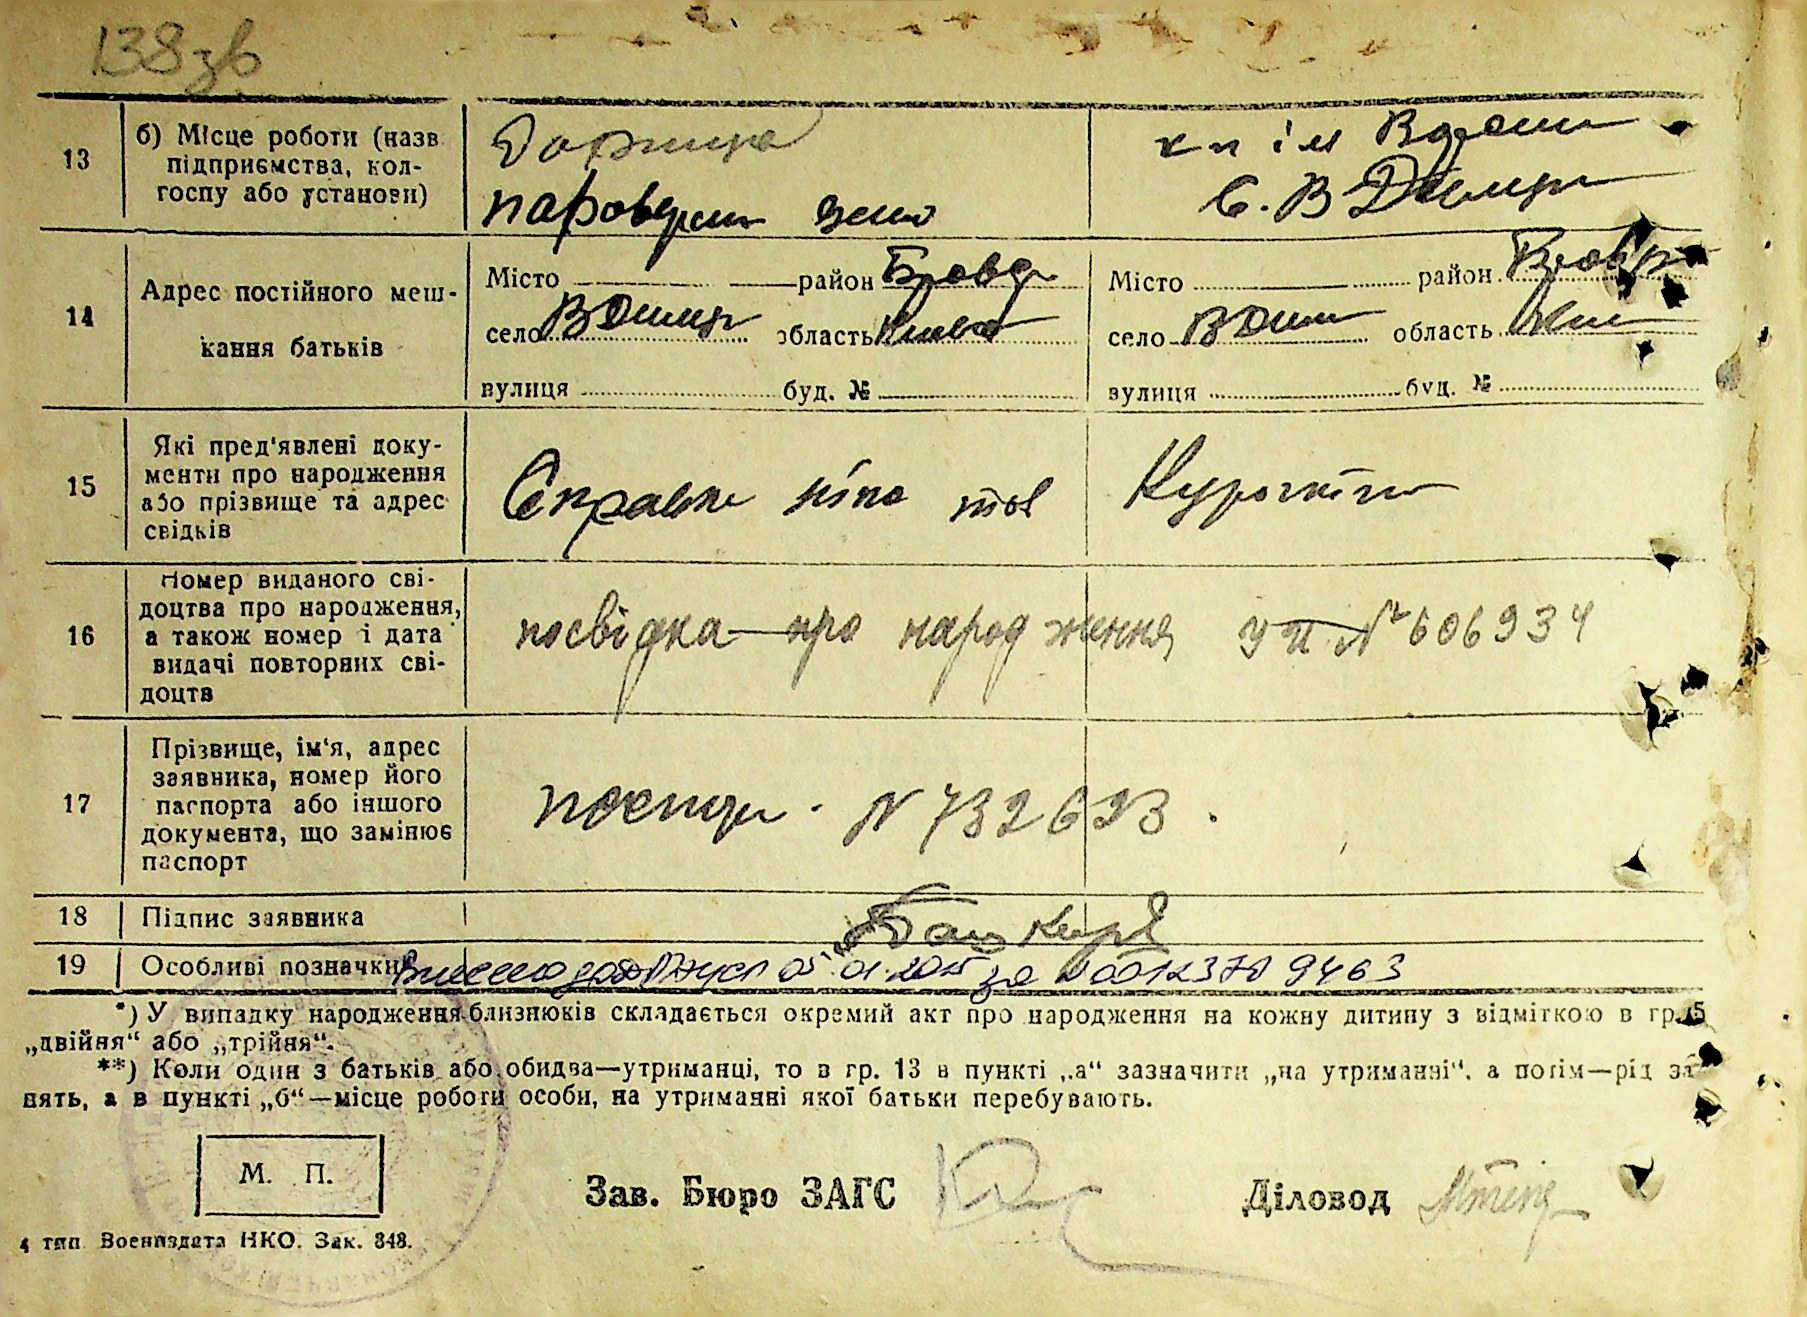 138зв
13 б) Місце роботи (назв підприємства, колгоспу або установи)
Дарниця
паровозн
к п ім
С. В Димер
14 Адрес постійного мешкання батьків
Місто район Бровар
село В Димер область Київс
вулиця буд. №
Місто район Бровар
село В Дим область Київ
вулиця буд. №
15 Які пред'явлені документи про народження або прізвище та адрес свідків
Справка
16 Номер виданого свідоцтва про народження, а також номер і дата видачі повторних свідоцтв
посвідка про народження УП № 606934
17 Прізвище, ім'я, адрес заявника, номер його паспорта або іншого документа, що замінює паспорт
N 732623.
18 Підпис заявника
19 Особливі позначки
Внесено до ДРАЦСГ 05.01.2015 за N 00123709463
*) У випадку народження близнюків складається окремий акт про народження на кожну дитину з відміткою в гр. 5
„двійня“ або „трійня“.
**) Коли один з батьків або обидва—утриманці, то в гр. 13 в пункті „а“ зазначити „на утриманні“, а потім—рід за-
нять, а в пункті „б“—місце роботи особи, на утриманні якої батьки перебувають.
М. П.
Зав. Бюро ЗАГС
Діловод
4 тип. Воениздата НКО. Зак. 348.